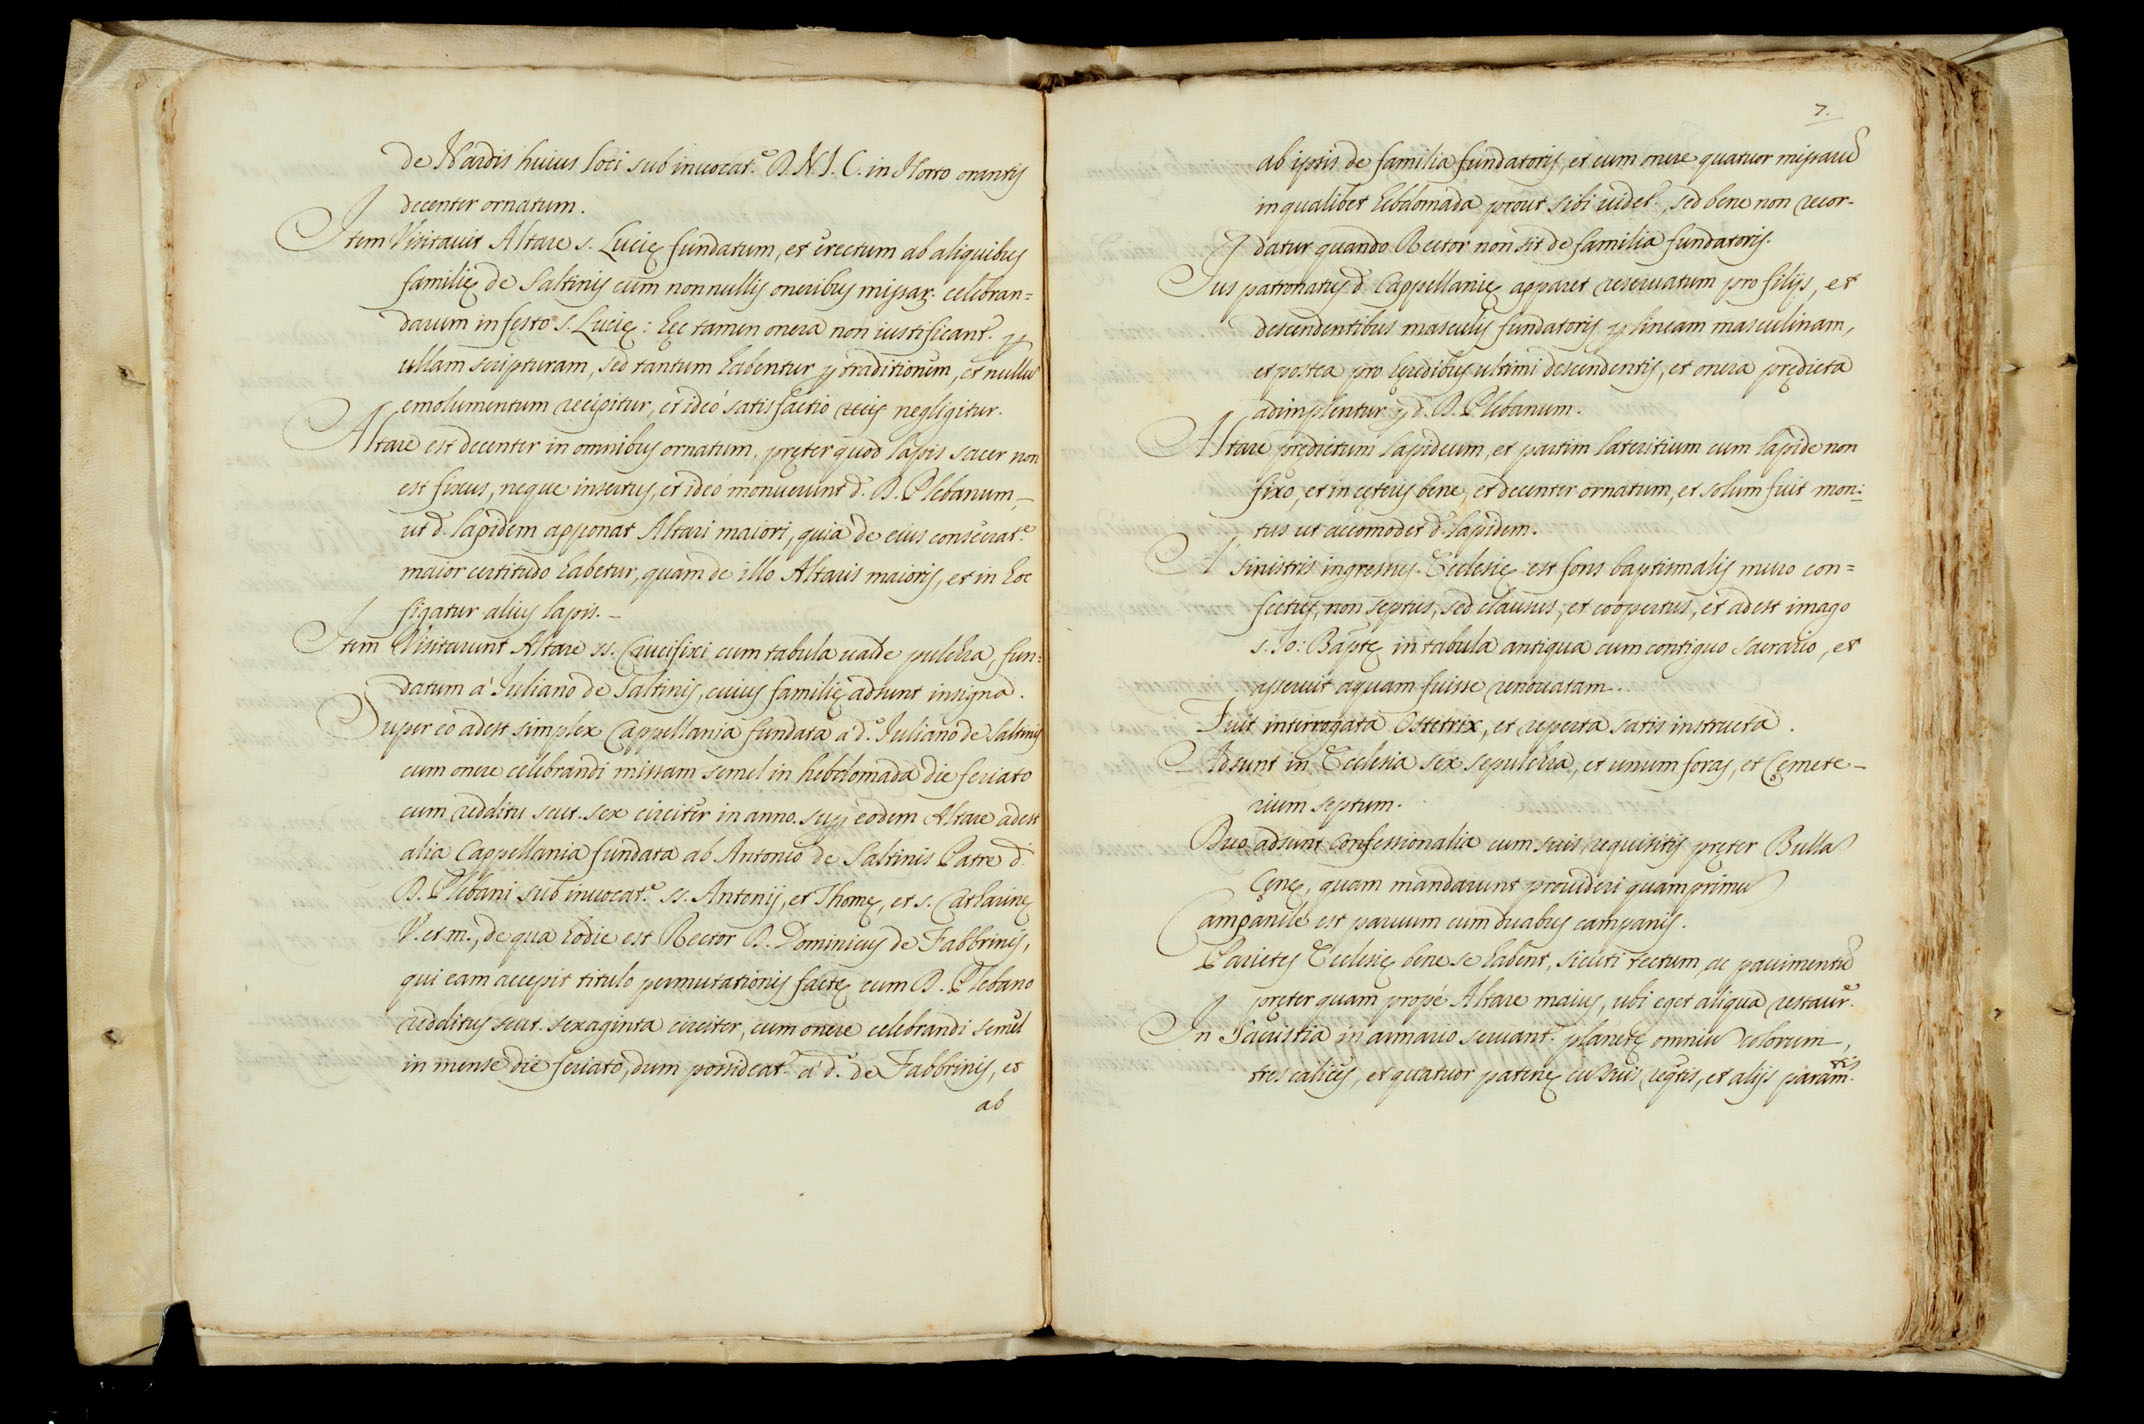 de Nardis huius loci sub inuocat.e D. N. I. C. in Horto orantis
decenter ornatum.
Item Visitauit Altare s. Lucię fundatum, et erectum ab aliquibus
familię de Saltinis cum nonnullis oneribus missar. celebran=
darum in festo s. Lucię: hęc tamen onera non iustificant.r p
ullam scripturam, sed tantum habentur p traditionem, et nullũ
emolumentum recipitur, et ideó satisfactio negligitur.
Altare est decenter in omnibus ornatum, pręter quod lapis sacer non
est fixus, neque insertus, et ideó monuerunt d. D. Plebanum,
ut d. lapidem apponat Altari maiori, quia de eius consecrat.e
maior certitudo habetur, quam de illo Altaris maioris, et in hoc
figatur alius lapis.
Item Visitarunt Altare ss. Crucifixi cum tabula ualde pulchra, fun=
datum á Iuliano de Saltinis, cuius familię adsunt insigna.
Super eo adest simplex Cappellania fundata á d.o Iuliano de Saltinis
cum onere celebrandi missam semel in hebdomada die feriato
cum redditu scut. sex circiter in anno. sup eodem Altare adest
alia Cappellania fundata ab Antonio de Saltinis Patre d.
D. Plebani sub inuocat.e ss. Antonij, et Thomę, et s. Catharinę
V. et m., de qua hodie est Rector D. Dominicus de Fabbrinis,
qui eam accepit titulo permutationis factę cum D. Plebano
redditus scut. sexaginta circiter, cum onere celebrandi semel
in mense die feriato, dum possideat.r á d. de Fabbrinis, et
ab
7.
ab ipsis de familia fundatoris, et cum onere quatuor missarũ
in qualibet hebdomada prout sibi uidet.r, sed bene non recor-
datur quando Rector non sit de familia fundatoris.
Ius patronatus d. Cappellanię apparet reseruatum pro filijs, et
descendentibus masculis fundatoris p lineam masculinam,
et postea pro hęredibus ultimi descendentis, et onera prędicta
adimplentur p d. D. Plebanum.
Altare prędictum lapideum, et partim lateritium cum lapide non
fixo, et in cęteris bene, et decenter ornatum, et solum fuit moni:
tus ut accomodet d. lapidem.
A' sinistris ingressus Ecclesię est fons baptismalis muro con=
fectus, non septus, sed clausus, et coopertus, et adest imago
s. Io: Baptę in tabula antiqua cum contiguo sacrario, et
asseruit aquam fuisse renouatam.
Fuit interrogata Ostetrix, et reperta satis instructa.
Adsunt in Ecclesia sex sepulchra, et unum foras, et Cęmete-
rium septum.
Duo adsunt confessionalia cum suis requisitis pręter Bullã
Cęnę, quam mandarunt prouideri quamprimũ
Campanile est paruum cum duabus campanis.
Parietes Ecclesię bene se habent, sicuti tectum, ac pauimentũ
pręterquam propé Altare maius, ubi eget aliqua restaur.e
In Sacristia in armario seruant.r planetę omniũ colorum,
tres calices, et quatuor patenę cũ suis reqtis, et alijs param.tis